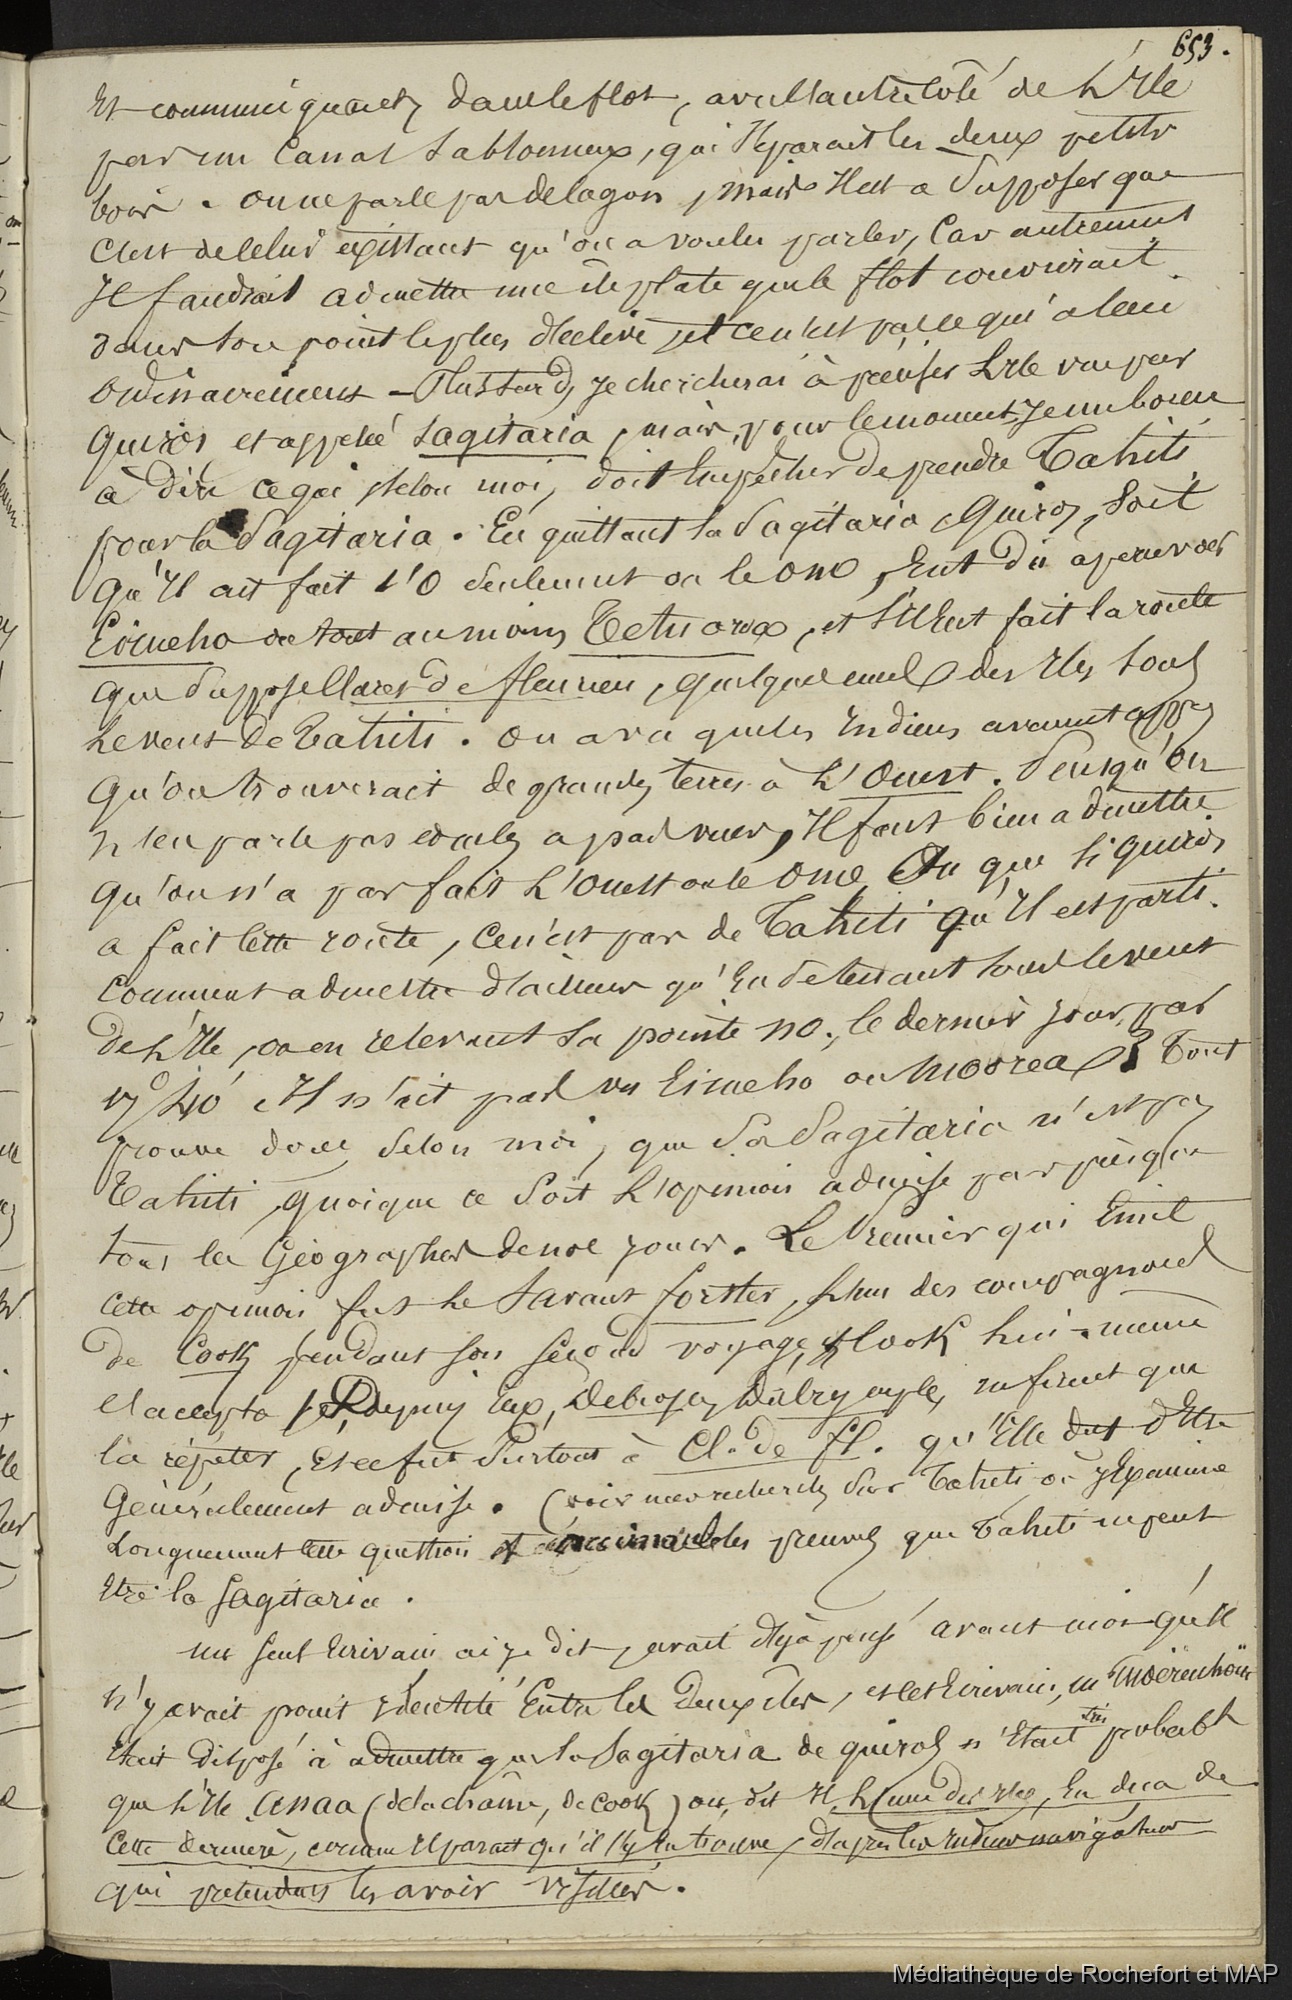 653.
Et communiquant, dans le flot, avec l'autre côté de L'Ile
par un Canal Sablonneux, qui Séparait les deux petits
bois. on ne parle pas de lagon, mais Il est a Supposer que
C'est de celui existant qu'on a voulu parler, Car autrement
Il faudrait admettre une île plate que le flot couvrirait
dans son point le plus déclive, et ce n'est pas ce qui a lieu
Ordinairement - Plus tard, je chercherai à préciser L'Ile vue par
Quiros et appelée Sagitaria, mais, pour le moment, Je me borne
à dire ce qui, selon moi, doit Empêcher de prendre Tahiti
pour la Sagitaria. En quittant la Sagitaria, Quiros, Soit
qu'Il ait fait l'O Seulement ou le ONO, Eut dû apercevoir
Eimeho ou tout au moins Tetuaroa, et S'Il Eut fait la route
que Suppose Claret de fleurieu, quelques unes des Iles Sous
le vent de Tahiti. On a vu que les Indiens avaient appris
qu'on trouverait de grandes terres à L'Ouest. Puisqu'on
n'en parle pas Il faut bien admettre
qu'on n'a pas fait L'Ouest ou le ONO, Ou que si Quiros
a fait Cette route, Ce n'est pas de Tahiti qu'Il est parti.
Comment admettre d'ailleurs qu'En Se tenant Sous le vent
de L'Ile, ou en relevant Sa pointe NO., le dernier Jour, par
17° 40' Il n'ait pas vu Eimeho ou Moorea? Tout
prouve donc, Selon moi, que La Sagitaria n'est pas
Tahiti, quoique ce Soit L'opinion admise par presque
tous les Géographes de nos jours. Le Premier qui Emit
cette opinion fut le Savant forster, L'un des compagnons
de Cook pendant son Second voyage; Cook Lui-même
l'accepta; Debrosses, Dalrymple, ne firent que
la répéter, Et ce fut Surtout à Cl. de Fl. qu'Elle dut d'Etre
Généralement admise. (voir mes recherches Sur Tahiti où J'Examine
Longuement Cette question les preuves que Tahiti ne peut
Etre la Sagitaria.
un Seul Ecrivain ai je dit, avait déjà pensé avant moi qu'Il
n'y avait point Identité Entre les Deux îles, et cet Ecrivain, M Moërenhout
Etait disposé à admettre que la Sagitaria de quiros n'Etait très probabt
que L'Ile Anaa (de la chaîne, de Cook) ou, dit Il, L'une des Iles, En deca de
Cette dernière, comme Il parait qu'il s'y En trouve, d'après les Indiens navigateurs
qui pretendent les avoir visitées.
Médiathèque de Rochefort et MAP